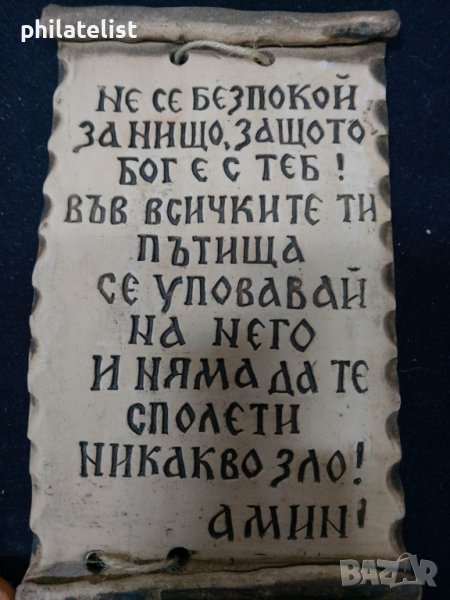 philatelist
НЕ СЕ БЕЗПОКОЙ
ЗА НИЩО, ЗАЩОТО
БОГ Е С ТЕБ!
ВЪВ ВСИЧКИТЕ ТИ
ПЪТИЩА
СЕ УПОВАВАЙ
НА НЕГО
И НЯМА ДА ТЕ
СПОЛЕТИ
НИКАКВО ЗЛО!
АМИН!
BAZAR